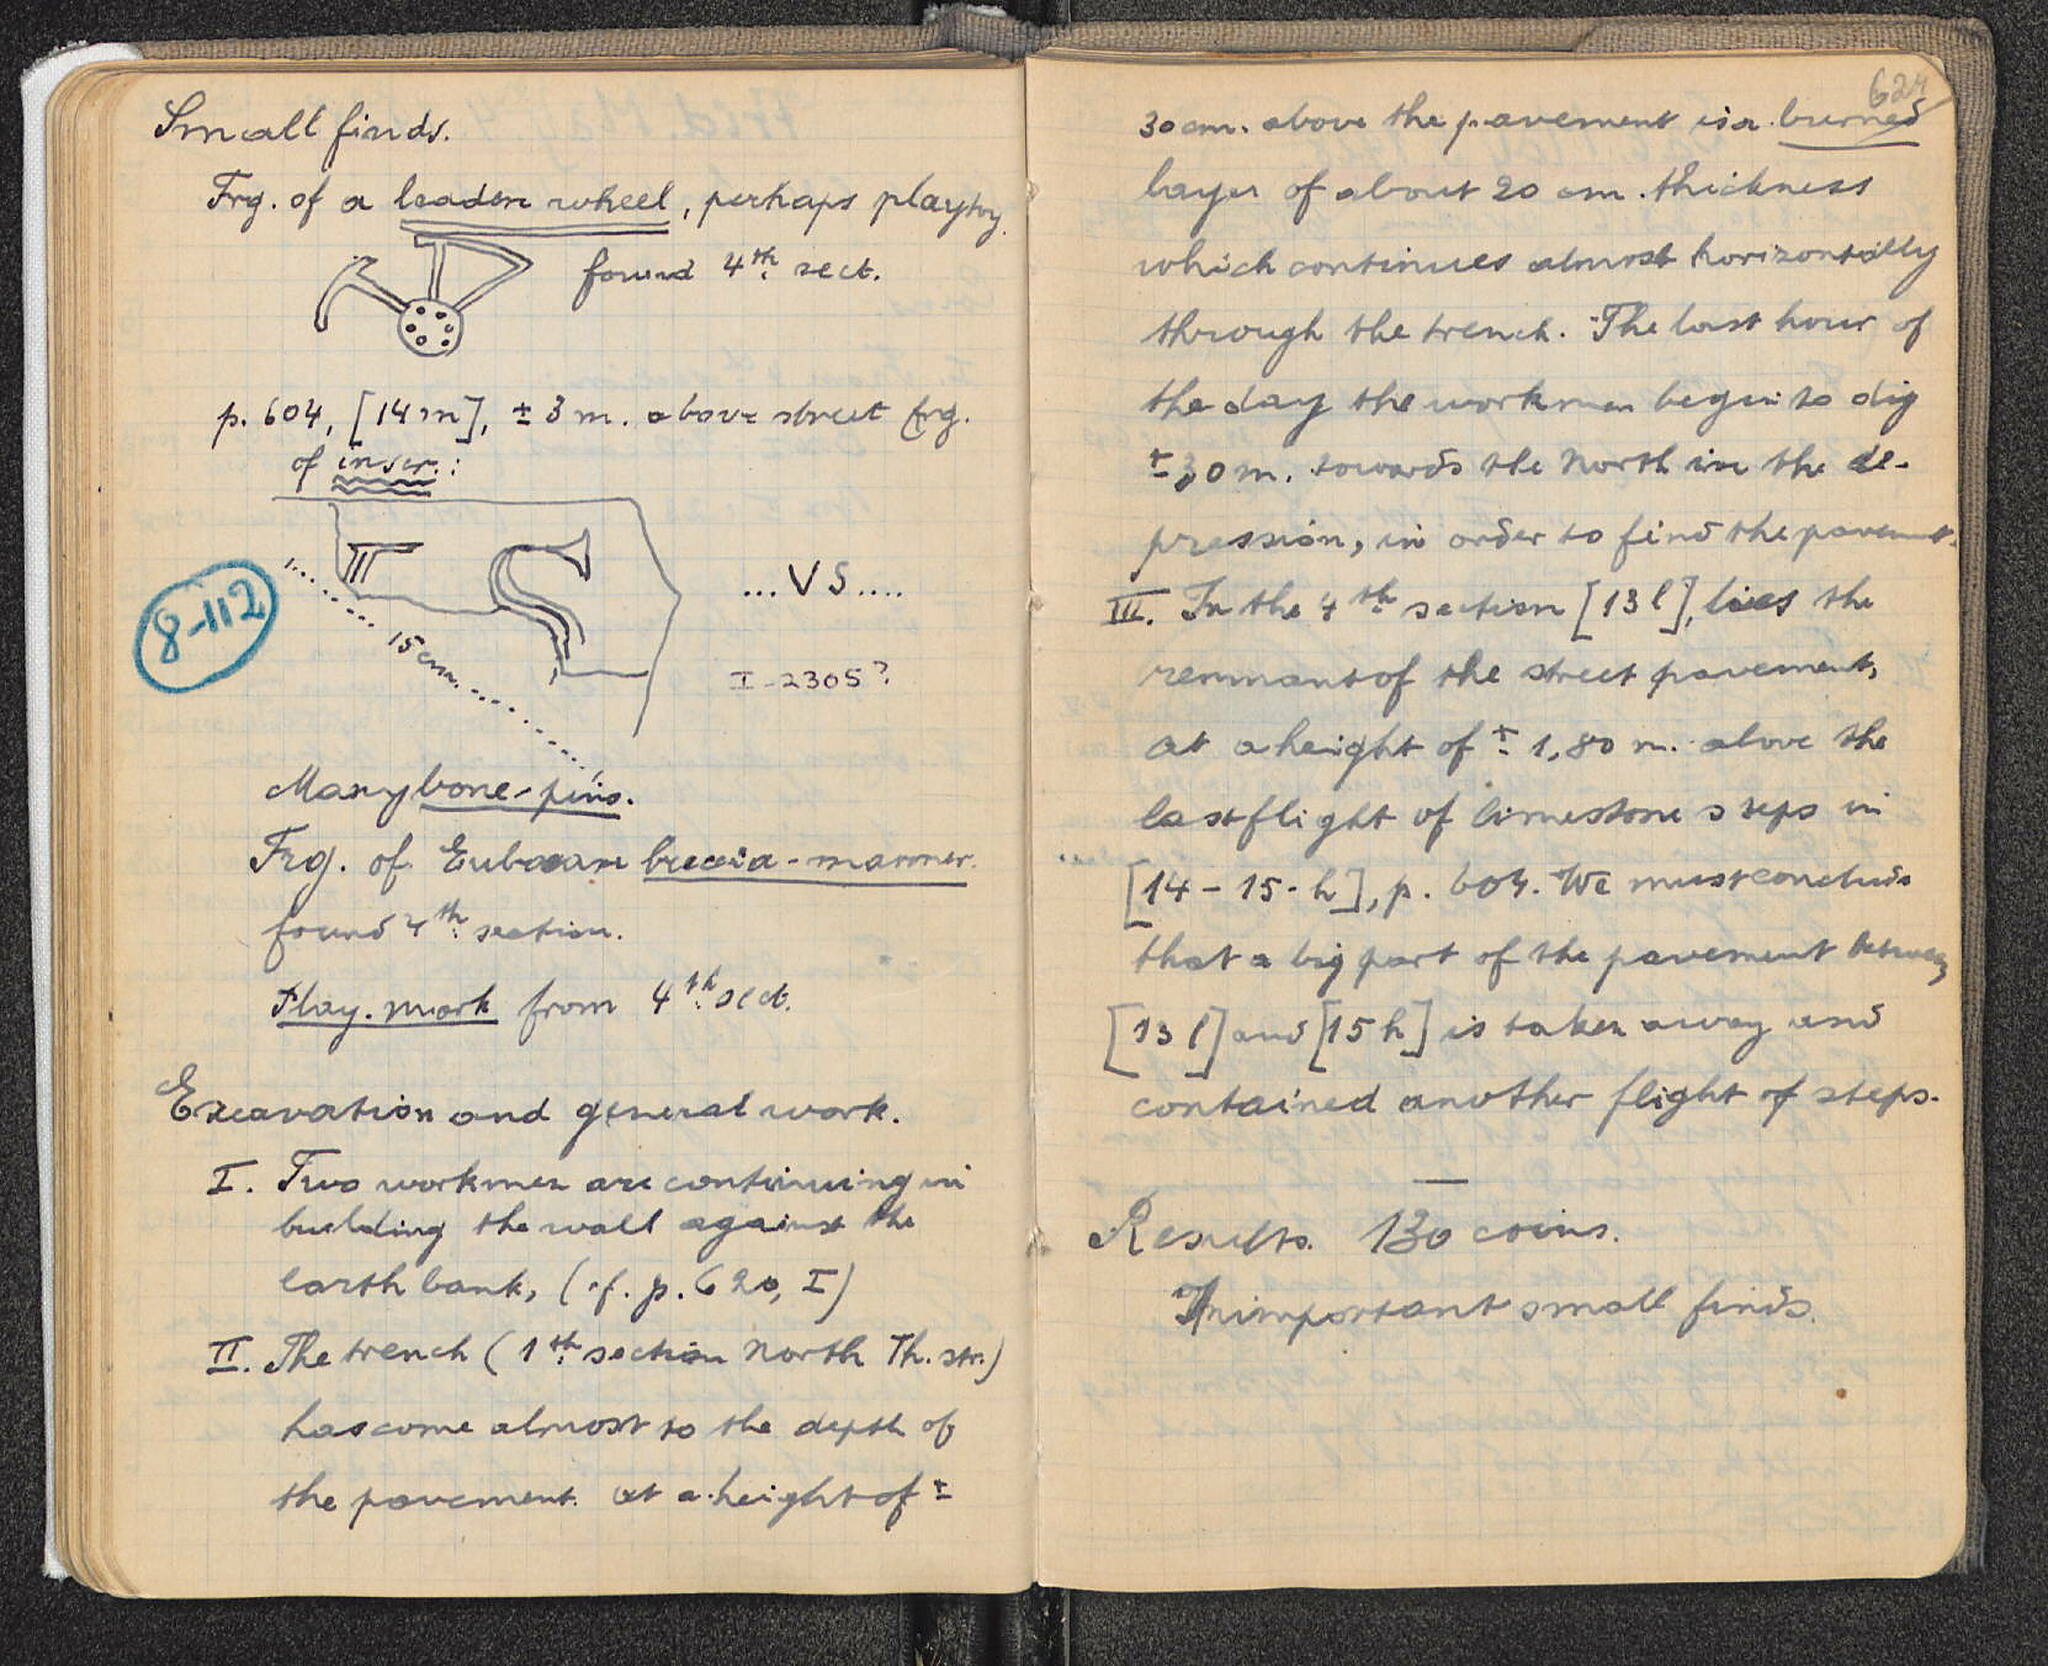 Small finds.
Frg. of a leaden wheel, perhaps playtoy.
found 4th. sect.
p. 604, [14 m], ± 3 m. above street frg.
of inscr.:
S
8-112
15 cm.
...VS....
I-2305?
Many bone-pins.
Frg. of Euboean breccia-marmer.
found 4th. section.
Play.mark from 4th. sect.
Excavation and general work.
I. Two workmen are continuing in
building the wall against the
earth bank, (cf. p. 620, I)
II. The trench (1th. section North Th. str.)
has come almost to the depth of
the pavement. at a height of ±
624
30 cm. above the pavement is a burned
layer of about 20 cm. thickness
which continues almost horizontally
through the trench. The last hour of
the day the workmen begin to dig
± 30 m. towards the North in the de-
pression, in order to find the pavement.
III. In the 4th. section [13 l], lies the
remnant of the street pavement,
at a height of ± 1,80 m. above the
last flight of limestone steps in
[14-15-h], p. 604. We must conclude
that a big part of the pavement between
[13 l] and [15 h] is taken away and
contained another flight of steps.
Results. 130 coins.
Inimportant small finds.